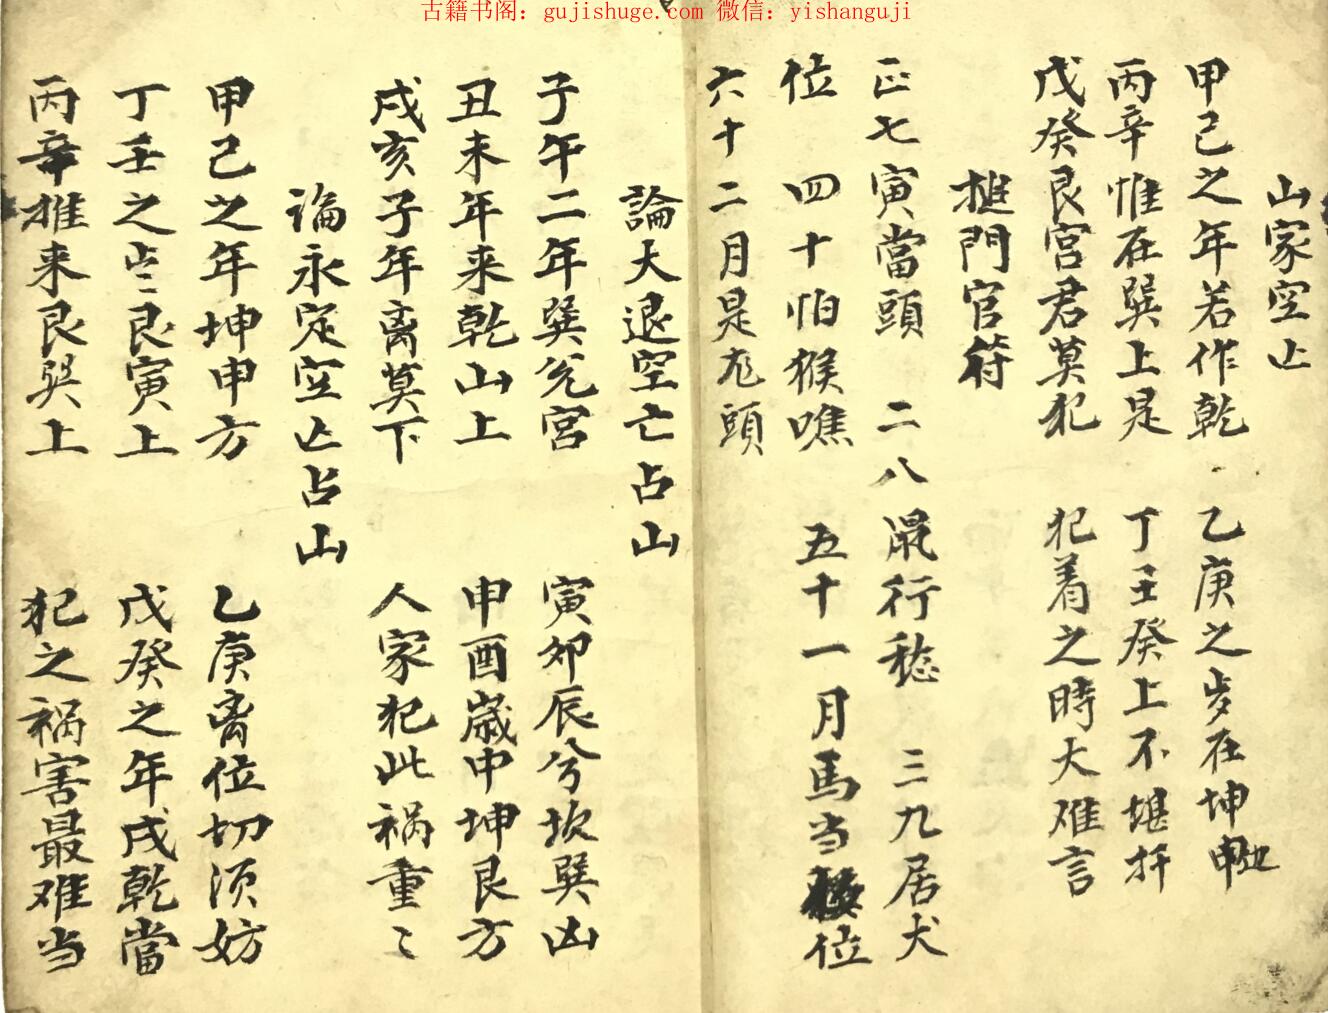 古籍书阁：gujishuge.com 微信：yishanguji
山家空亡
甲己之年若作乾 乙庚之岁在坤申地
丙辛惟在巽上是 丁壬癸上不堪扦
戊癸艮宫君莫犯 犯着之時大难言
門官符
正七寅當頭 二八鼠行愁 三九居犬
位 四十怕猴噍 五十一月馬当位
六十二月是龙頭
論大退空亡占山
子午二年巽兊宮 寅卯辰兮坎巽凶
丑未年来乾山上 申酉歲中坤艮方
戌亥子年离莫下 人家犯此祸重〻
論永定空亡占山
甲己之年坤申方 乙庚离位切须妨
丁壬之艮寅上 戊癸之年戌乾當
丙辛推来艮巽上 犯之祸害最难当